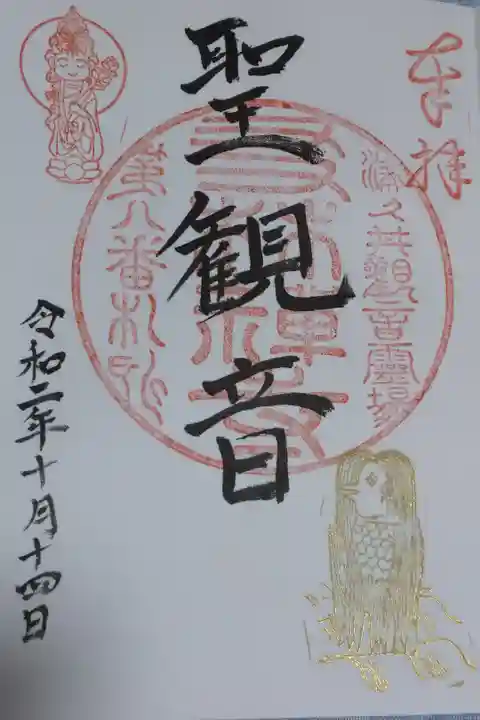 奉拝
聖観音
津久井観音霊場
第八番札所
令和二年十月十四日